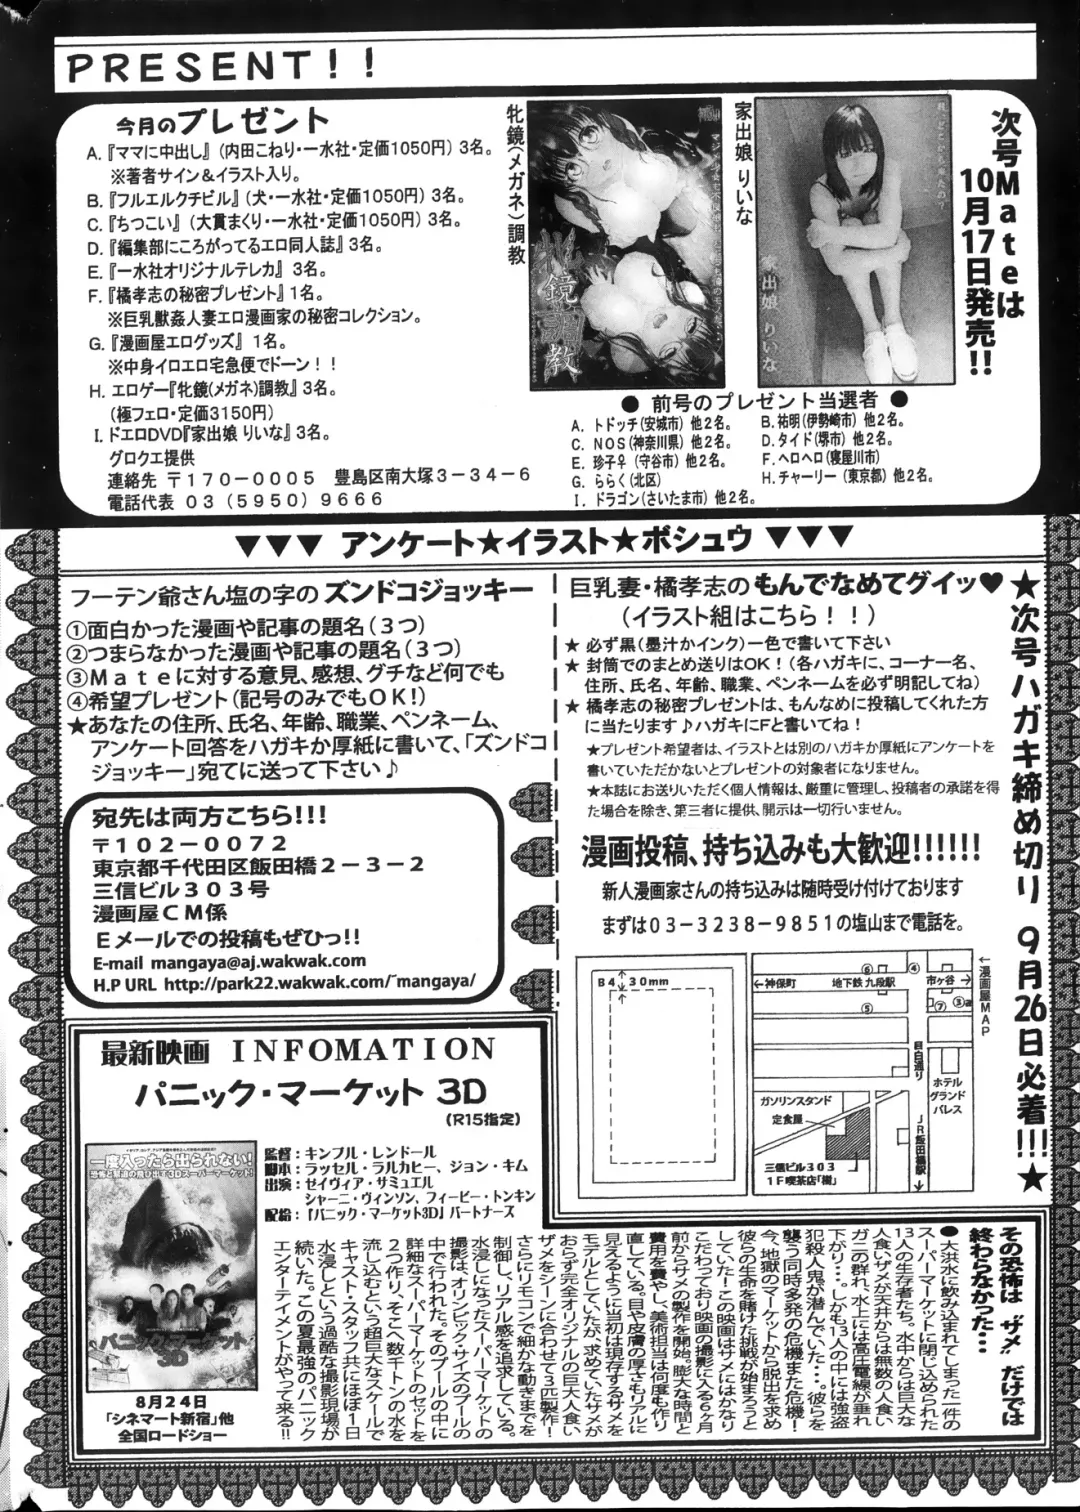 PRESENT!!
今月のプレゼント
A.『ママに中出し』(内田こねり・一水社・定価1050円) 3名。
※著者サイン&イラスト入り。
B.『フルエルクチビル』(犬・一水社・定価1050円) 3名。
C.『ちつこい』(大貫まくり・一水社・定価1050円) 3名。
D.『編集部にころがってるエロ同人誌』3名。
E.『一水社オリジナルテレカ』3名。
F.『橘孝志の秘密プレゼント』1名。
※巨乳獣姦人妻エロ漫画家の秘密コレクション。
G.『漫画屋エログッズ』1名。
※中身イロエロ宅急便でドーン!!
H. エロゲー『牝鏡(メガネ)調教』3名。
(極フェロ・定価3150円)
I. ドエロDVD『家出娘 りいな』3名。
グロクエ提供
連絡先 〒170-0005 豊島区南大塚3-34-6
電話代表 03(5950)9666
牝鏡(メガネ)調教
牝鏡調教
家出娘 りいな
家出娘 りいな
次号Mateは
10月17日発売!!
● 前号のプレゼント当選者 ●
A. トドッチ(安城市) 他2名。
B. 祐明(伊勢崎市) 他2名。
C. NOS(神奈川県) 他2名。
D. タイド(堺市) 他2名。
E. 珍子♀(守谷市) 他2名。
F. ヘロヘロ(寝屋川市)
G. ららく(北区)
H. チャーリー(東京都) 他2名。
I. ドラゴン(さいたま市) 他2名。
▼▼▼ アンケート★イラスト★ボシュウ ▼▼▼
フーテン爺さん塩の字の ズンドコジョッキー
①面白かった漫画や記事の題名(3つ)
②つまらなかった漫画や記事の題名(3つ)
③Mateに対する意見、感想、グチなど何でも
④希望プレゼント(記号のみでもOK!)
★あなたの住所、氏名、年齢、職業、ペンネーム、
アンケート回答をハガキか厚紙に書いて、「ズンドコ
ジョッキー」宛てに送って下さい♪
宛先は両方こちら!!!
〒102-0072
東京都千代田区飯田橋2-3-2
三信ビル303号
漫画屋CM係
Eメールでの投稿もぜひっ!!
E-mail mangaya@aj.wakwak.com
H.P URL http://park22.wakwak.com/~mangaya/
巨乳妻・橘孝志の もんでなめてグイッ♥
(イラスト組はこちら!!)
★ 必ず黒(墨汁かインク)一色で書いて下さい
★ 封筒でのまとめ送りはOK!(各ハガキに、コーナー名、
住所、氏名、年齢、職業、ペンネームを必ず明記してね)
★ 橘孝志の秘密プレゼントは、もんなめに投稿してくれた方
に当たります♪ハガキにFと書いてね!
★プレゼント希望者は、イラストとは別のハガキか厚紙にアンケートを
書いていただかないとプレゼントの対象者になりません。
★本誌にお送りいただく個人情報は、厳重に管理し、投稿者の承諾を得
た場合を除き、第三者に提供、開示は一切行いません。
漫画投稿、持ち込みも大歓迎!!!!!!
新人漫画家さんの持ち込みは随時受け付けております
まずは03-3238-9851の塩山まで電話を。
★次号ハガキ締め切り 9月26日必着!!!★
B4 30mm
←神保町
地下鉄 九段駅
市ヶ谷→
⑥
④
⑤
⑦
③
←漫画屋MAP
目白通り
ホテル
グランド
パレス
ガソリンスタンド
定食屋
JR飯田橋駅
三信ビル303
1F喫茶店「樹」
最新映画 INFOMATION
パニック・マーケット 3D
(R15指定)
一度入ったら出られない!
パニック・マーケット
3D
8月24日
「シネマート新宿」他
全国ロードショー
監督:キンブル・レンドール
脚本:ラッセル・マルカヒー、ジョン・キム
出演:ゼイヴィア・サミュエル
シャーニ・ヴィンソン、フィービー・トンキン
配給:『パニック・マーケット3D』パートナーズ
その恐怖は“サメ”だけでは
終わらなかった…
●大洪水に飲み込まれてしまった一件の
スーパーマーケットに閉じ込められた
13人の生存者たち。水中からは巨大な
人食いザメが、天井からは無数の人食い
ガニの群れ、水上には高圧電線が垂れ
下がり…。しかも13人の中には強盗
犯殺人鬼が潜んでいた…。彼らを
襲う同時多発の危機また危機!
今、地獄のマーケットから脱出を求め
彼らの生命を賭けた挑戦が始まろうと
していた!この映画はサメにはかなり
こだわっており映画の撮影に入る6ヶ月
前からサメの製作を開始。膨大な時間と
費用を費やし、美術担当は何度も作り
直している。目や皮膚の厚さもリアルに
見えるように当初は現存するサメを
モデルとしていたが、求めていたサメが
おらず完全オリジナルの巨大人食い
ザメをシーンに合わせて3匹製作!
さらにリモコンで細かな動きまでを
制御し、リアル感を追求している。
水浸しになったスーパーマーケットの
撮影は、オリンピックサイズのプールの
中で行われた。そのプールの中に
詳細なスーパーマーケットのセットを
2つ作り、そこへ数千トンの水を
流し込むという超巨大なスケールで
キャスト・スタッフ共にほぼ1日
水浸しという過酷な撮影現場が
続いた。この夏最強のパニック
エンターテイメントがやって来る!!